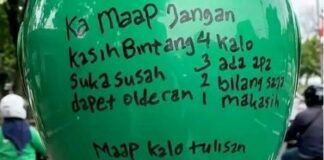 Ka Maap Jangan
Kasih Bintang 4 Kalo
Suka susah 3 ada apa
dapet olderan 2 bilang saja
1 makasih
Maap kalo tulisan